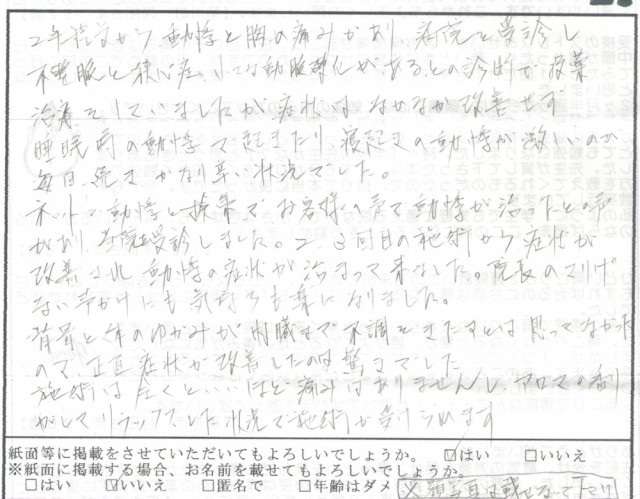 2年程前から動悸と胸の痛みがあり、病院を受診し
不整脈と狭心症、小さな動脈硬化があるとの診断で投薬
治療をしていましたが症状はなかなか改善せず
睡眠時の動悸で起きたり、寝起きの動悸が激しいのが
毎日続きかなり辛い状況でした。
ネットで動悸と検索で、お客様の声で動悸が治ったとの声
があり、当院を受診しました。2、3回目の施術から症状が
改善され動悸の症状が治まって来ました。院長のさりげ
ない声かけにも気持ちも楽になりました。
背骨と体のゆがみが内臓まで不調をきたすとは思ってなかった
ので、正直症状が改善したのは驚きでした
施術は全くといいほど痛みはありませんし、アロマの香り
がしてリラックスした状況で施術が受けられます
紙面等に掲載をさせていただいてもよろしいでしょうか。 ☑はい □いいえ
※紙面に掲載する場合、お名前を載せてもよろしいでしょうか。
□はい ☑いいえ □匿名で □年齢はダメ ※ 載せないで下さい